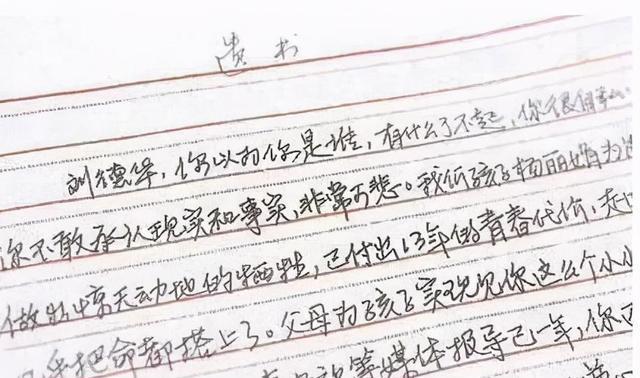 遗书
刘德华,你以为你是谁,有什么了不起,你很自私
你不敢承认现实和事实,非常可悲。我们孩子杨丽娟为
做出惊天动地的牺牲,已付出13年的青春代价,走
把命都搭上了。父母为孩子实现见你这么个小小
等媒体报导已一年,你